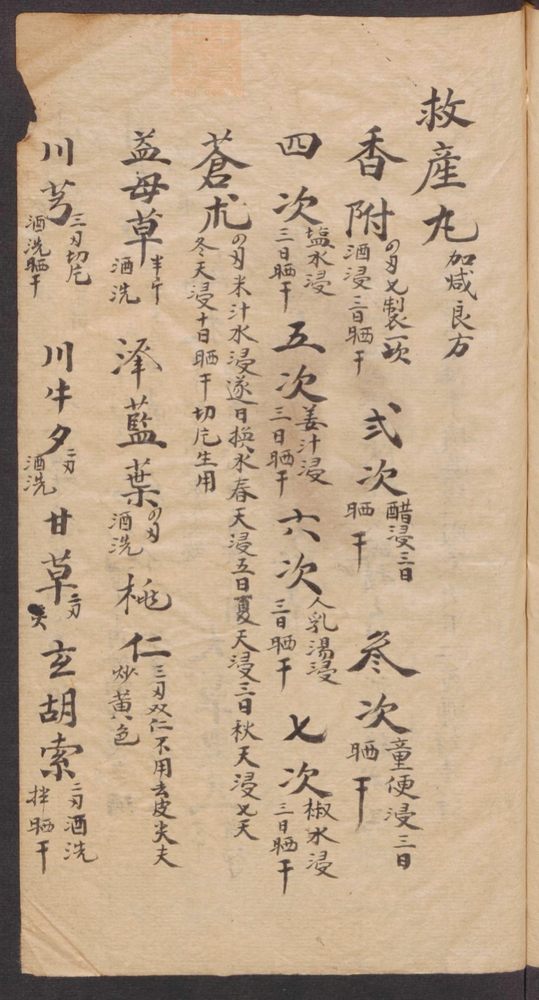 救產丸 加减良方
香附 の刄七製一次酒浸三日晒干 弍次 醋浸三日晒干 叁次 童便浸三日晒干
四次 塩水浸三日晒干 五次 姜汁浸三日晒干 六次 人乳湯浸三日晒干 七次 椒水浸三日晒干
蒼朮 の刄米汁水浸遂日换水春天浸五日夏天浸三日秋天浸七天冬天浸十日晒干切片生用
益母草 半斤酒洗 泽藍葉 の刄酒洗 桃仁 三刄双仁不用去皮尖夫炒黄色
川芎 三刄切片酒洗晒干 川牛夕 二刄酒洗 甘草 二刄 玄胡索 二刄酒洗拌晒干